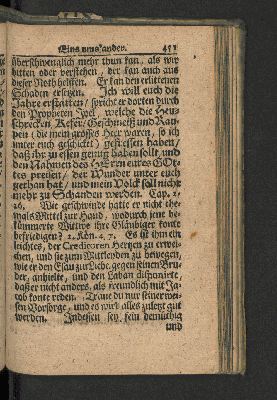 Eins ums ander. 451
überschwenglich mehr thun kan, als wir
bitten oder verstehen, der kan auch aus
dieser Noth helffen. Er kan den erlittenen
Schaden ersetzen. Ich will euch die
Jahre erstatten / spricht er dorten durch
den Propheten Joel, welche die Heu-
schrecken, Kefer / Geschmeiß und Rau-
pen (die mein grosses Heer waren, so ich
unter euch geschicket) gefressen haben /
daß ihr zu essen genug haben sollt, und
den Nahmen des HErrn eures GOt-
tes preisen / der Wunder unter euch
gethan hat / und mein Volck soll nicht
mehr zu Schanden werden. Cap. 2,
26. Wie geschwinde hatte er nicht ehe-
mals Mittel zur Hand, wodurch jene be-
kümmerte Wittwe ihre Gläubiger konte
befriedigen? 2. Kön. 4, 7. Es ist ihm ein
leichtes, der Creditoren Hertzen zu erwei-
chen, und sie zum Mitleyden zu bewegen,
wie er den Esau zur Liebe gegen seinen Bru-
der, anhielte, und den Laban disponirte,
daß er nicht anders, als freundlich mit Ja-
cob konte reden. Traue du nur seiner wei-
sen Vorsorge, und es wird alles zuletzt gut
werden. Indessen sey fein demüthig
und